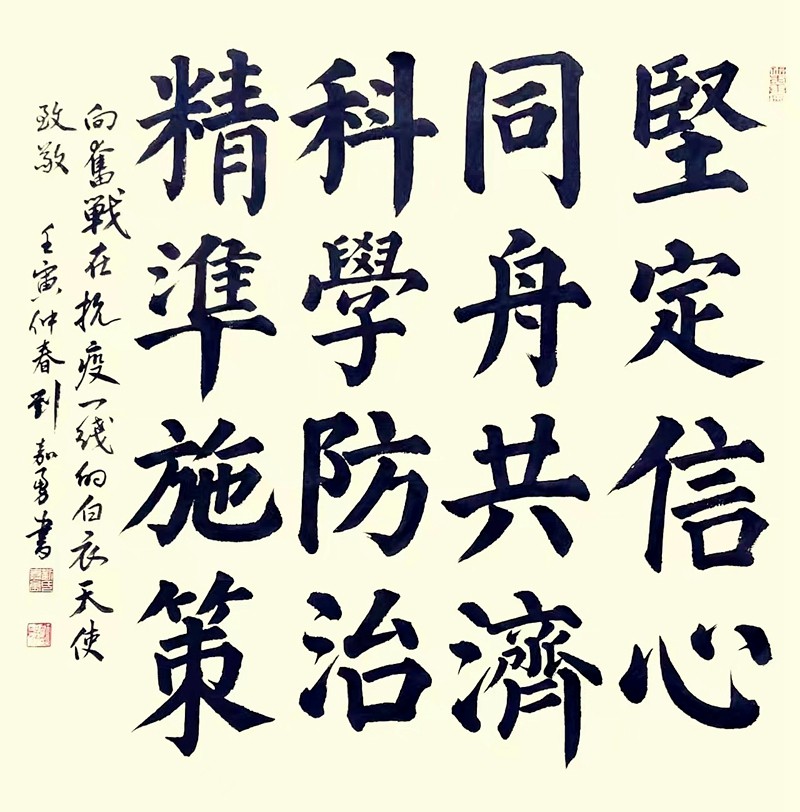 堅定信心
同舟共濟
科學防治
精準施策
向奮戰在抗疫一綫的白衣天使
致敬 壬寅仲春劉嘉勇書